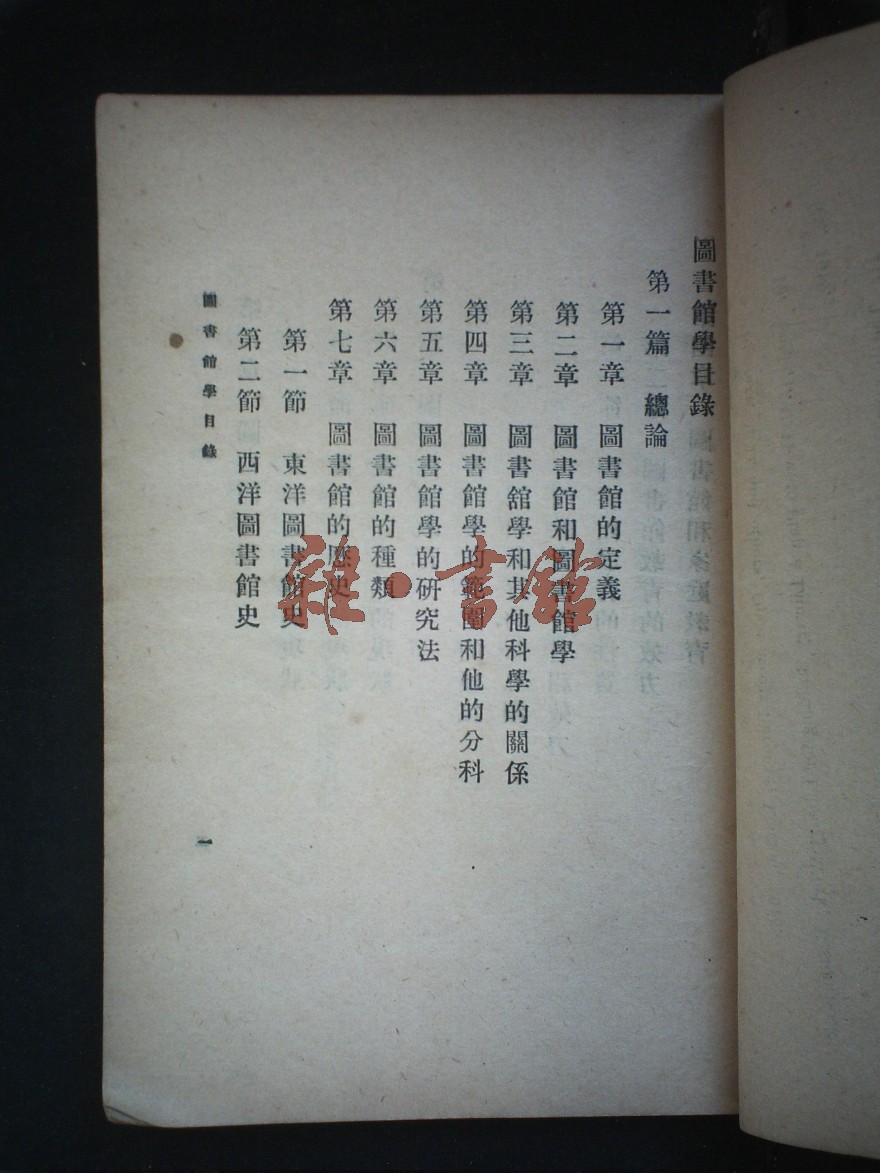 圖書館學目錄
第一篇 總論
第一章 圖書館的定義
第二章 圖書館和圖書館學
第三章 圖書舘學和其他科學的關係
第四章 圖書館學的範圍和他的分科
第五章 圖書館學的研究法
第六章 圖書館的種類
第七章 圖書館的歷史
第一節 東洋圖書館史
第二節 西洋圖書館史
圖書館學目錄
一
雜·書舘